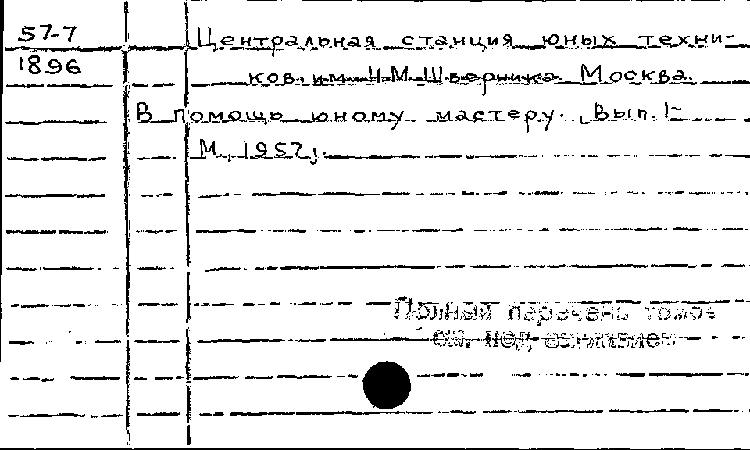 57-7
1896
Центральная станция юных техни-
ков им. Н.М. Шверника. Москва.
В помощь юному мастеру. Вып. 1-
М., 1957г.
Полный перечень томов
см. под заглавием